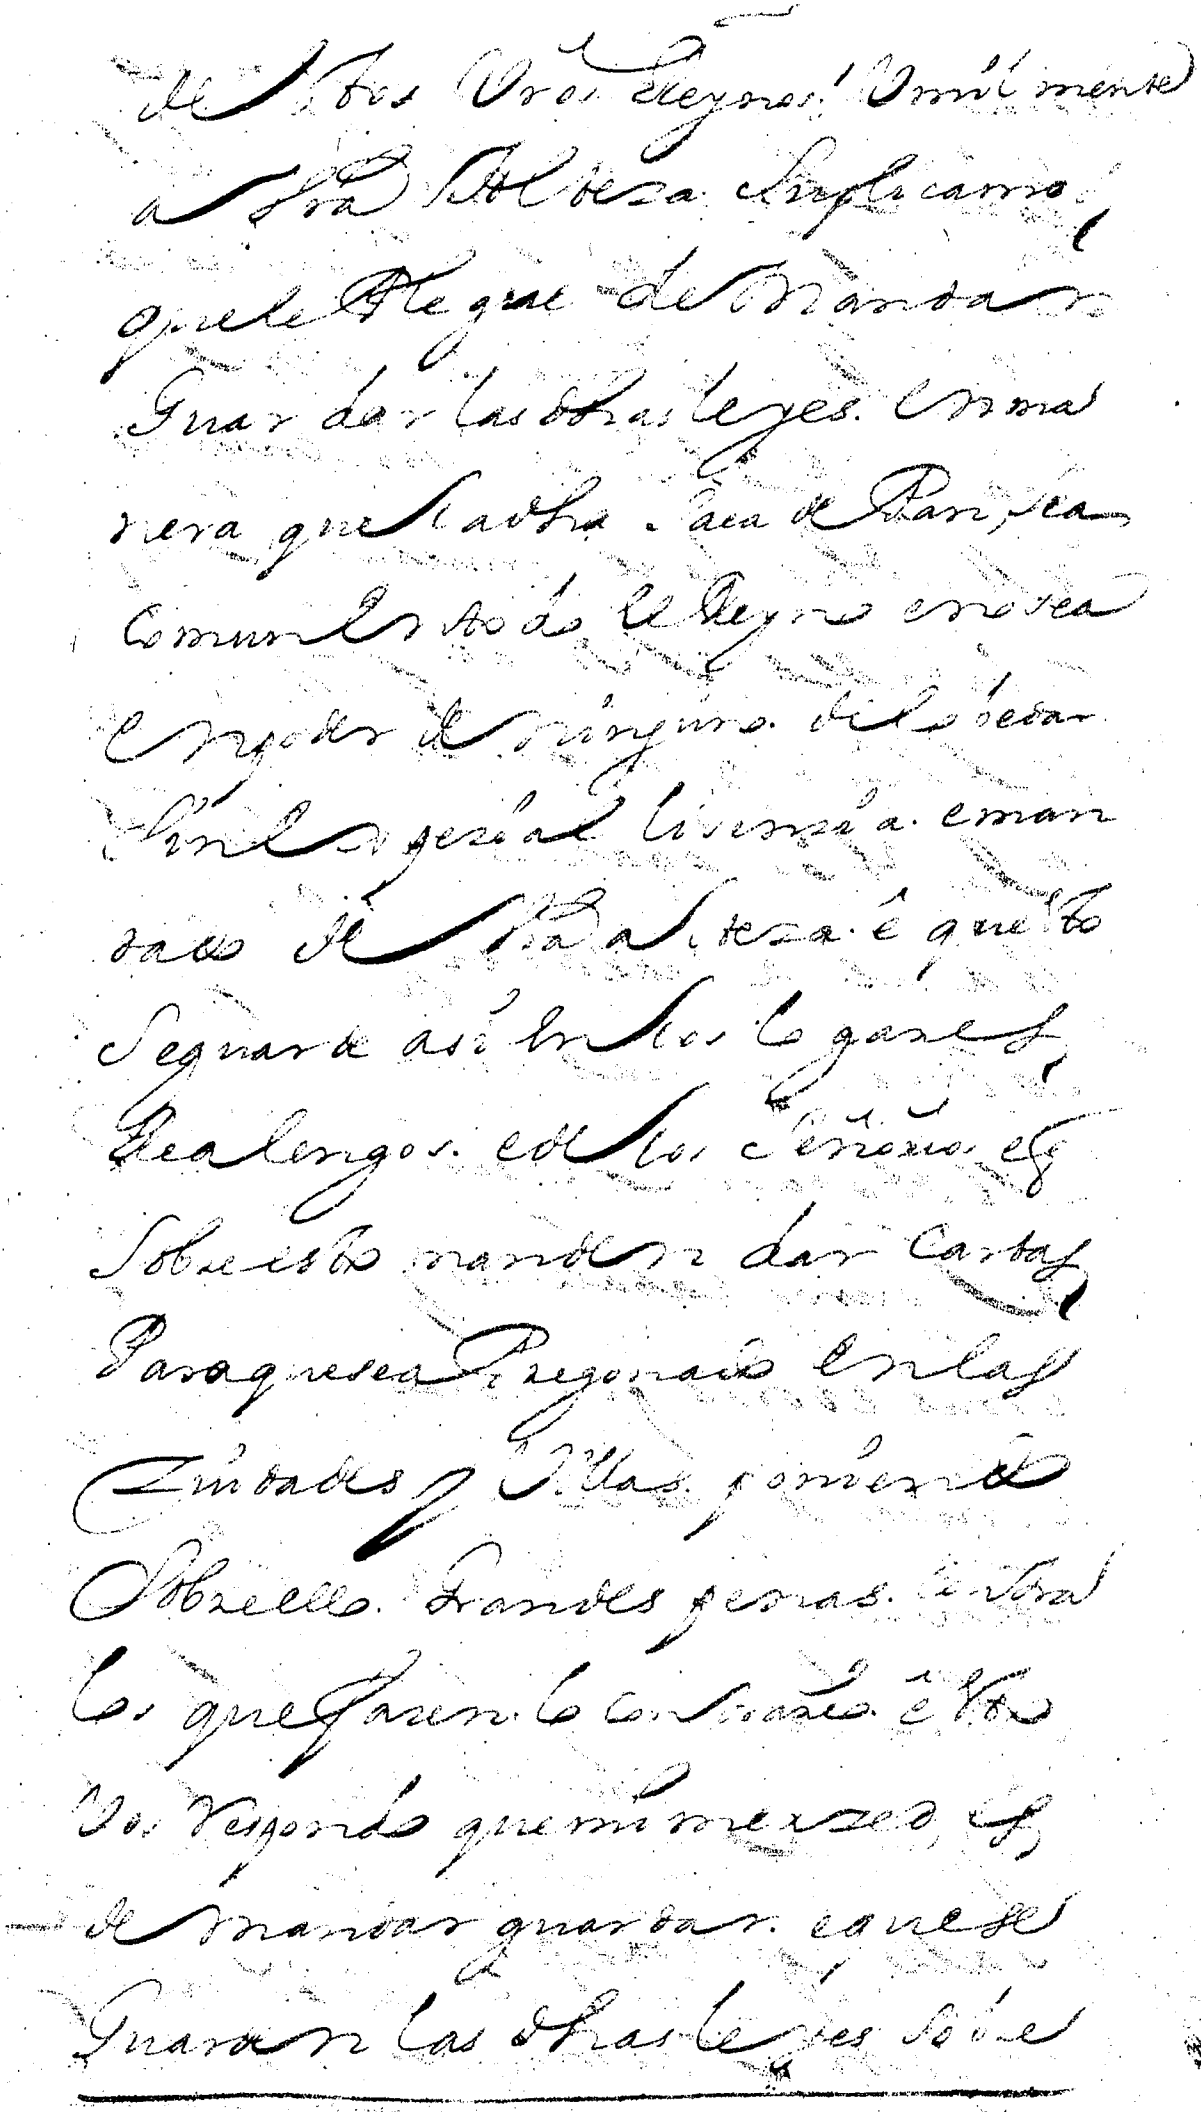 de estos Vr̃os Reynos. Vmilmente
a Vr̃a Alteza Suplicamos
quele Plegue de Mandar
Guardar las dhas leyes. en ma
nera que la dha saca de Pan, sea
Comun En todo el Reyno enosea
en poder de ninguno. de lo vedar
Sin Espezial lizenzia. eman
dado de Vr̃a alteza. ê questo
Seguarde asi en los logares
Realengos. ede los señorios e q̃
Sobre esto manden dar Cartas
Paraquesea Pregonado en las
Ziudades y Villas. poniendo
Sobre ello. Grandes penas. contra
los que fazen lo contrario. ê Esto
Vos Respondo que mi merzed, es
de mandar guardar. eque se
Guarden las dhas leyes sobre